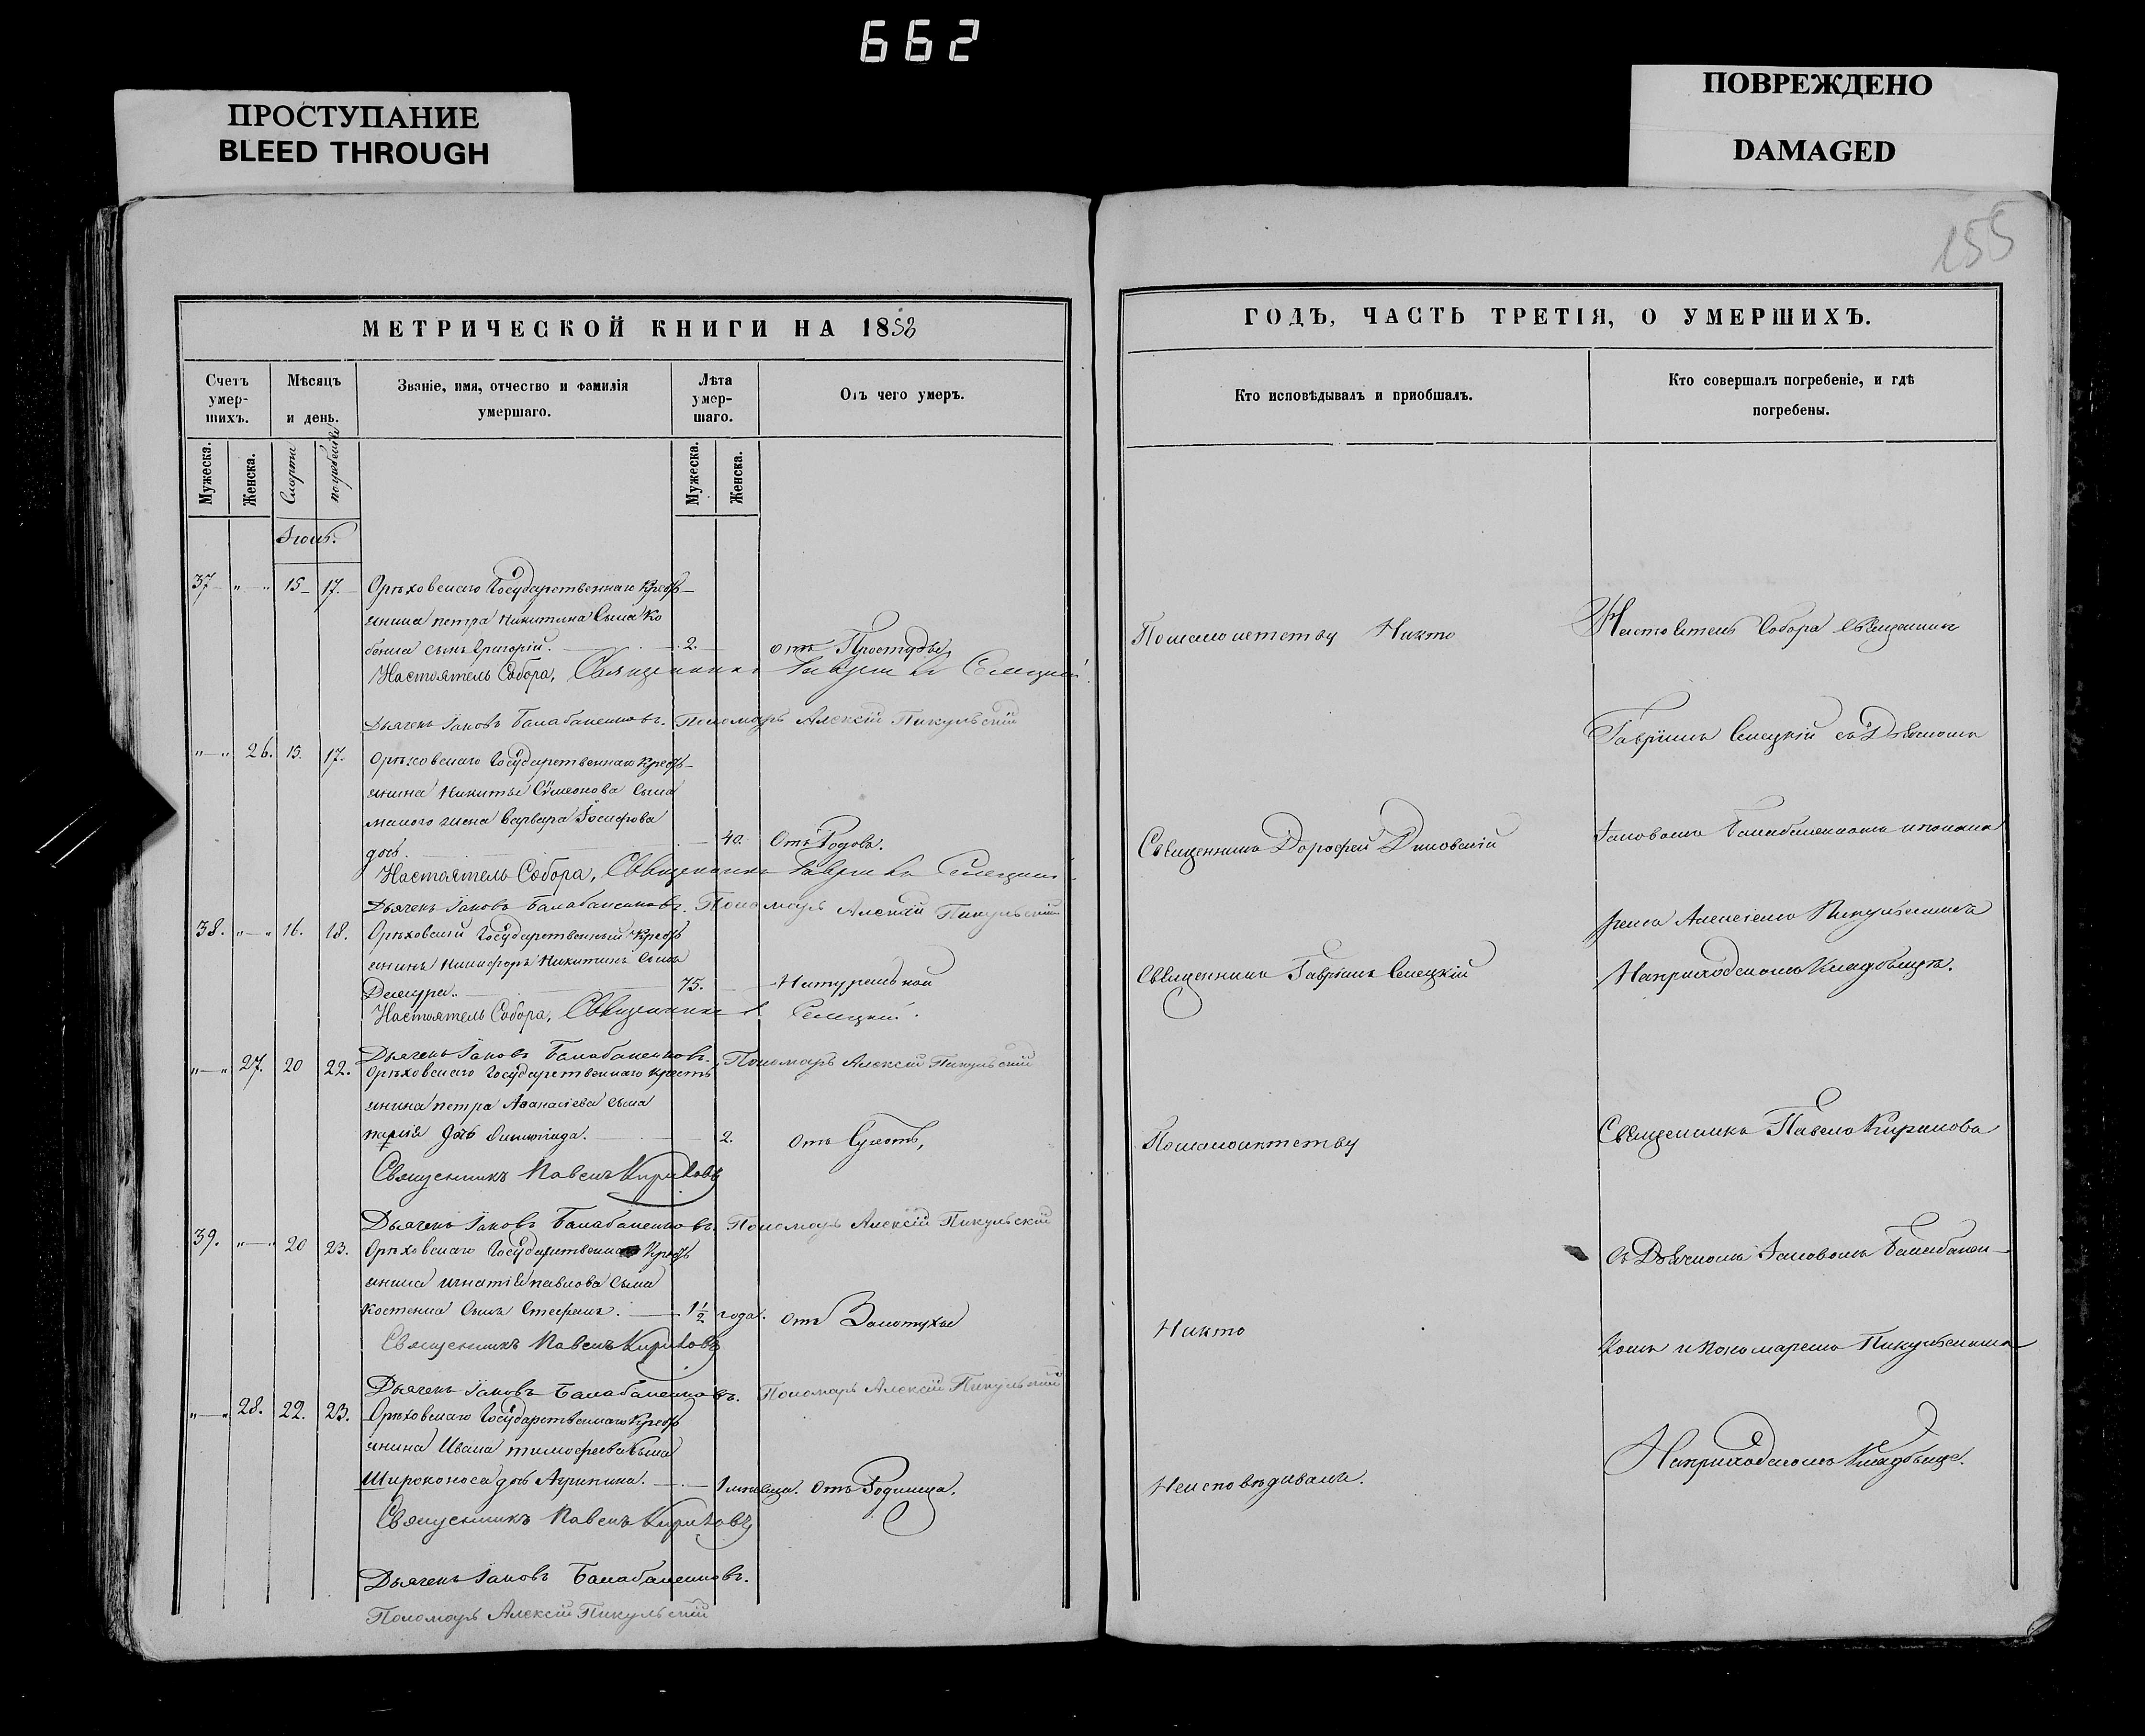 662
ПРОСТУПАНИЕ
BLEED THROUGH
ПОВРЕЖДЕНО
DAMAGED
155
МЕТРИЧЕСКОЙ КНИГИ НА 1858
Счетъ умер-шихъ.
Мѣсяцъ и день.
Званіе, имя, отчество и фамилія умершаго.
Лѣта умер-шаго.
Отъ чего умеръ.
Мужеска.
Женска.
Смерти
погребенія
Мужеска.
Женска.
37 " " 15 17. Орѣховскаго Государственнаго Крестъ-
янина петра Никитина Сына Ко
сынъ Григорій. 2. отъ Простуды
Настоятель Собора, Священникъ Гавріилъ Селецкій.
Дьячекъ Іаковъ Балабаненковъ. Пономарь Алексій Пикульскій
" " 26. 15. 17. Орѣховскаго Государственнаго Крестъ-
янина Никиты Сѵмеонова Сына
жена Варвара Іосифова
дочь. 40. Отъ Родовъ.
Настоятель Собора, Священникъ Гавріилъ Селецкій.
Дьячекъ Іаковъ Балабаненковъ. Пономарь Алексій Пикульскій
38. " " 16. 18. Орѣховскій Государственный Крестъ
янинъ Никифоръ Никитинъ Сынъ
75. Натуральной
Настоятель Собора, Священникъ Г. Селецкій.
Дьячекъ Іаковъ Балабаненковъ. Пономарь Алексій Пикульскій
" " 27. 20 22. Орѣховскаго Государственнаго Крестъ
янина петра Аѳанасіева сына
дочь 2. Отъ Сухотъ,
Священникъ Павелъ Кириловъ
Дьячекъ Іаковъ Балабаненковъ. Пономарь Алексій Пикульскій
39. " " 20 23. Орѣховскаго Государственнаго Крестъ
янина игнатія павлова сына
костенка сынъ Стефанъ. 1½ года. отъ Золотухи
Священникъ Павелъ Кириловъ
Дьячекъ Іаковъ Балабаненковъ. Пономарь Алексій Пикульскій
" " 28. 22. 23. Орѣховскаго Государственнаго Крестъ
янина Ивана тимофеева сына
Широконоса дочь Агрипина. 1 месяца. Отъ Родимца.
Священникъ Павелъ Кириловъ
Дьячекъ Іаковъ Балабаненковъ.
Пономарь Алексій Пикульскій
ГОДЪ, ЧАСТЬ ТРЕТІЯ, О УМЕРШИХЪ.
Кто исповѣдывалъ и пріобщалъ.
Кто совершалъ погребеніе, и гдѣ погребены.
Помалолетству Никто
Настоятель Собора Священникъ
Гавріилъ Селецкій съ Дьячкомъ
Священникъ Дорофей
Іаковомъ Балабаненкомъ и понома
ремъ Алексіемъ Пикульскимъ
Священникъ Гавріилъ Селецкій
На приходскомъ Кладбищѣ.
Помалолетству
Священникъ Павелъ Кириловъ
съ Дьячкомъ Іаковомъ Балабанен-
Никто
комъ и Пономаремъ Пикульскимъ
На приходскомъ Кладбищѣ.
Неисповѣдыванъ.